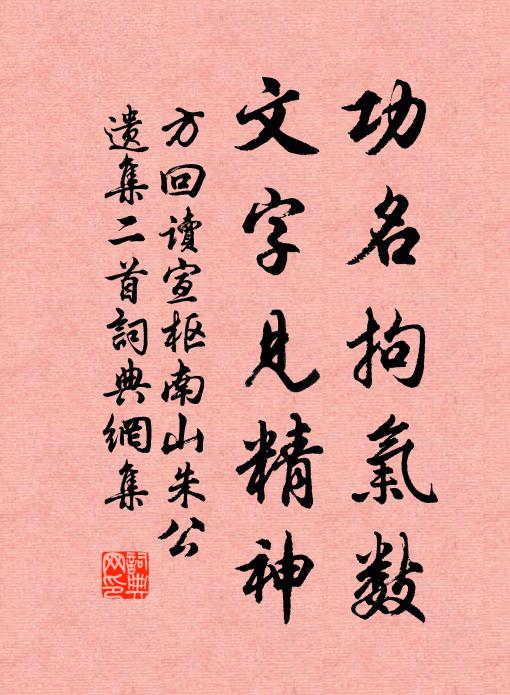 功名拘氣數
文字見精神
方回读宣枢南山朱公
遗集二首詞典網集
詞典網印